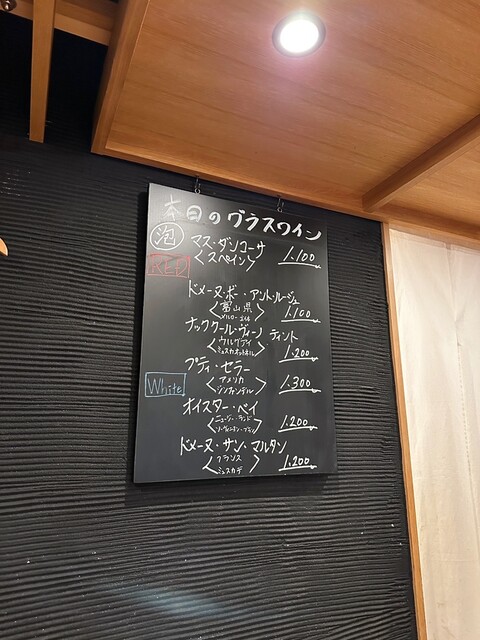 本日のグラスワイン
泡 マス・ダンコーサ
<スペイン> 1.100
RED
ドメーヌ・ボー・アント・ルージュ
<富山県
メルロー・> 1.100
ナッククール・ヴィーノ ティント
<ウルグアイ
> 1.200
プティ・セラー
<アメリカ
ジンファンデル> 1.300
White
オイスター・ベイ
<ニュージーランド
ソーヴィニヨン・ブラン> 1.200
ドメーヌ・サン・マルタン
<フランス
ミュスカデ> 1.200